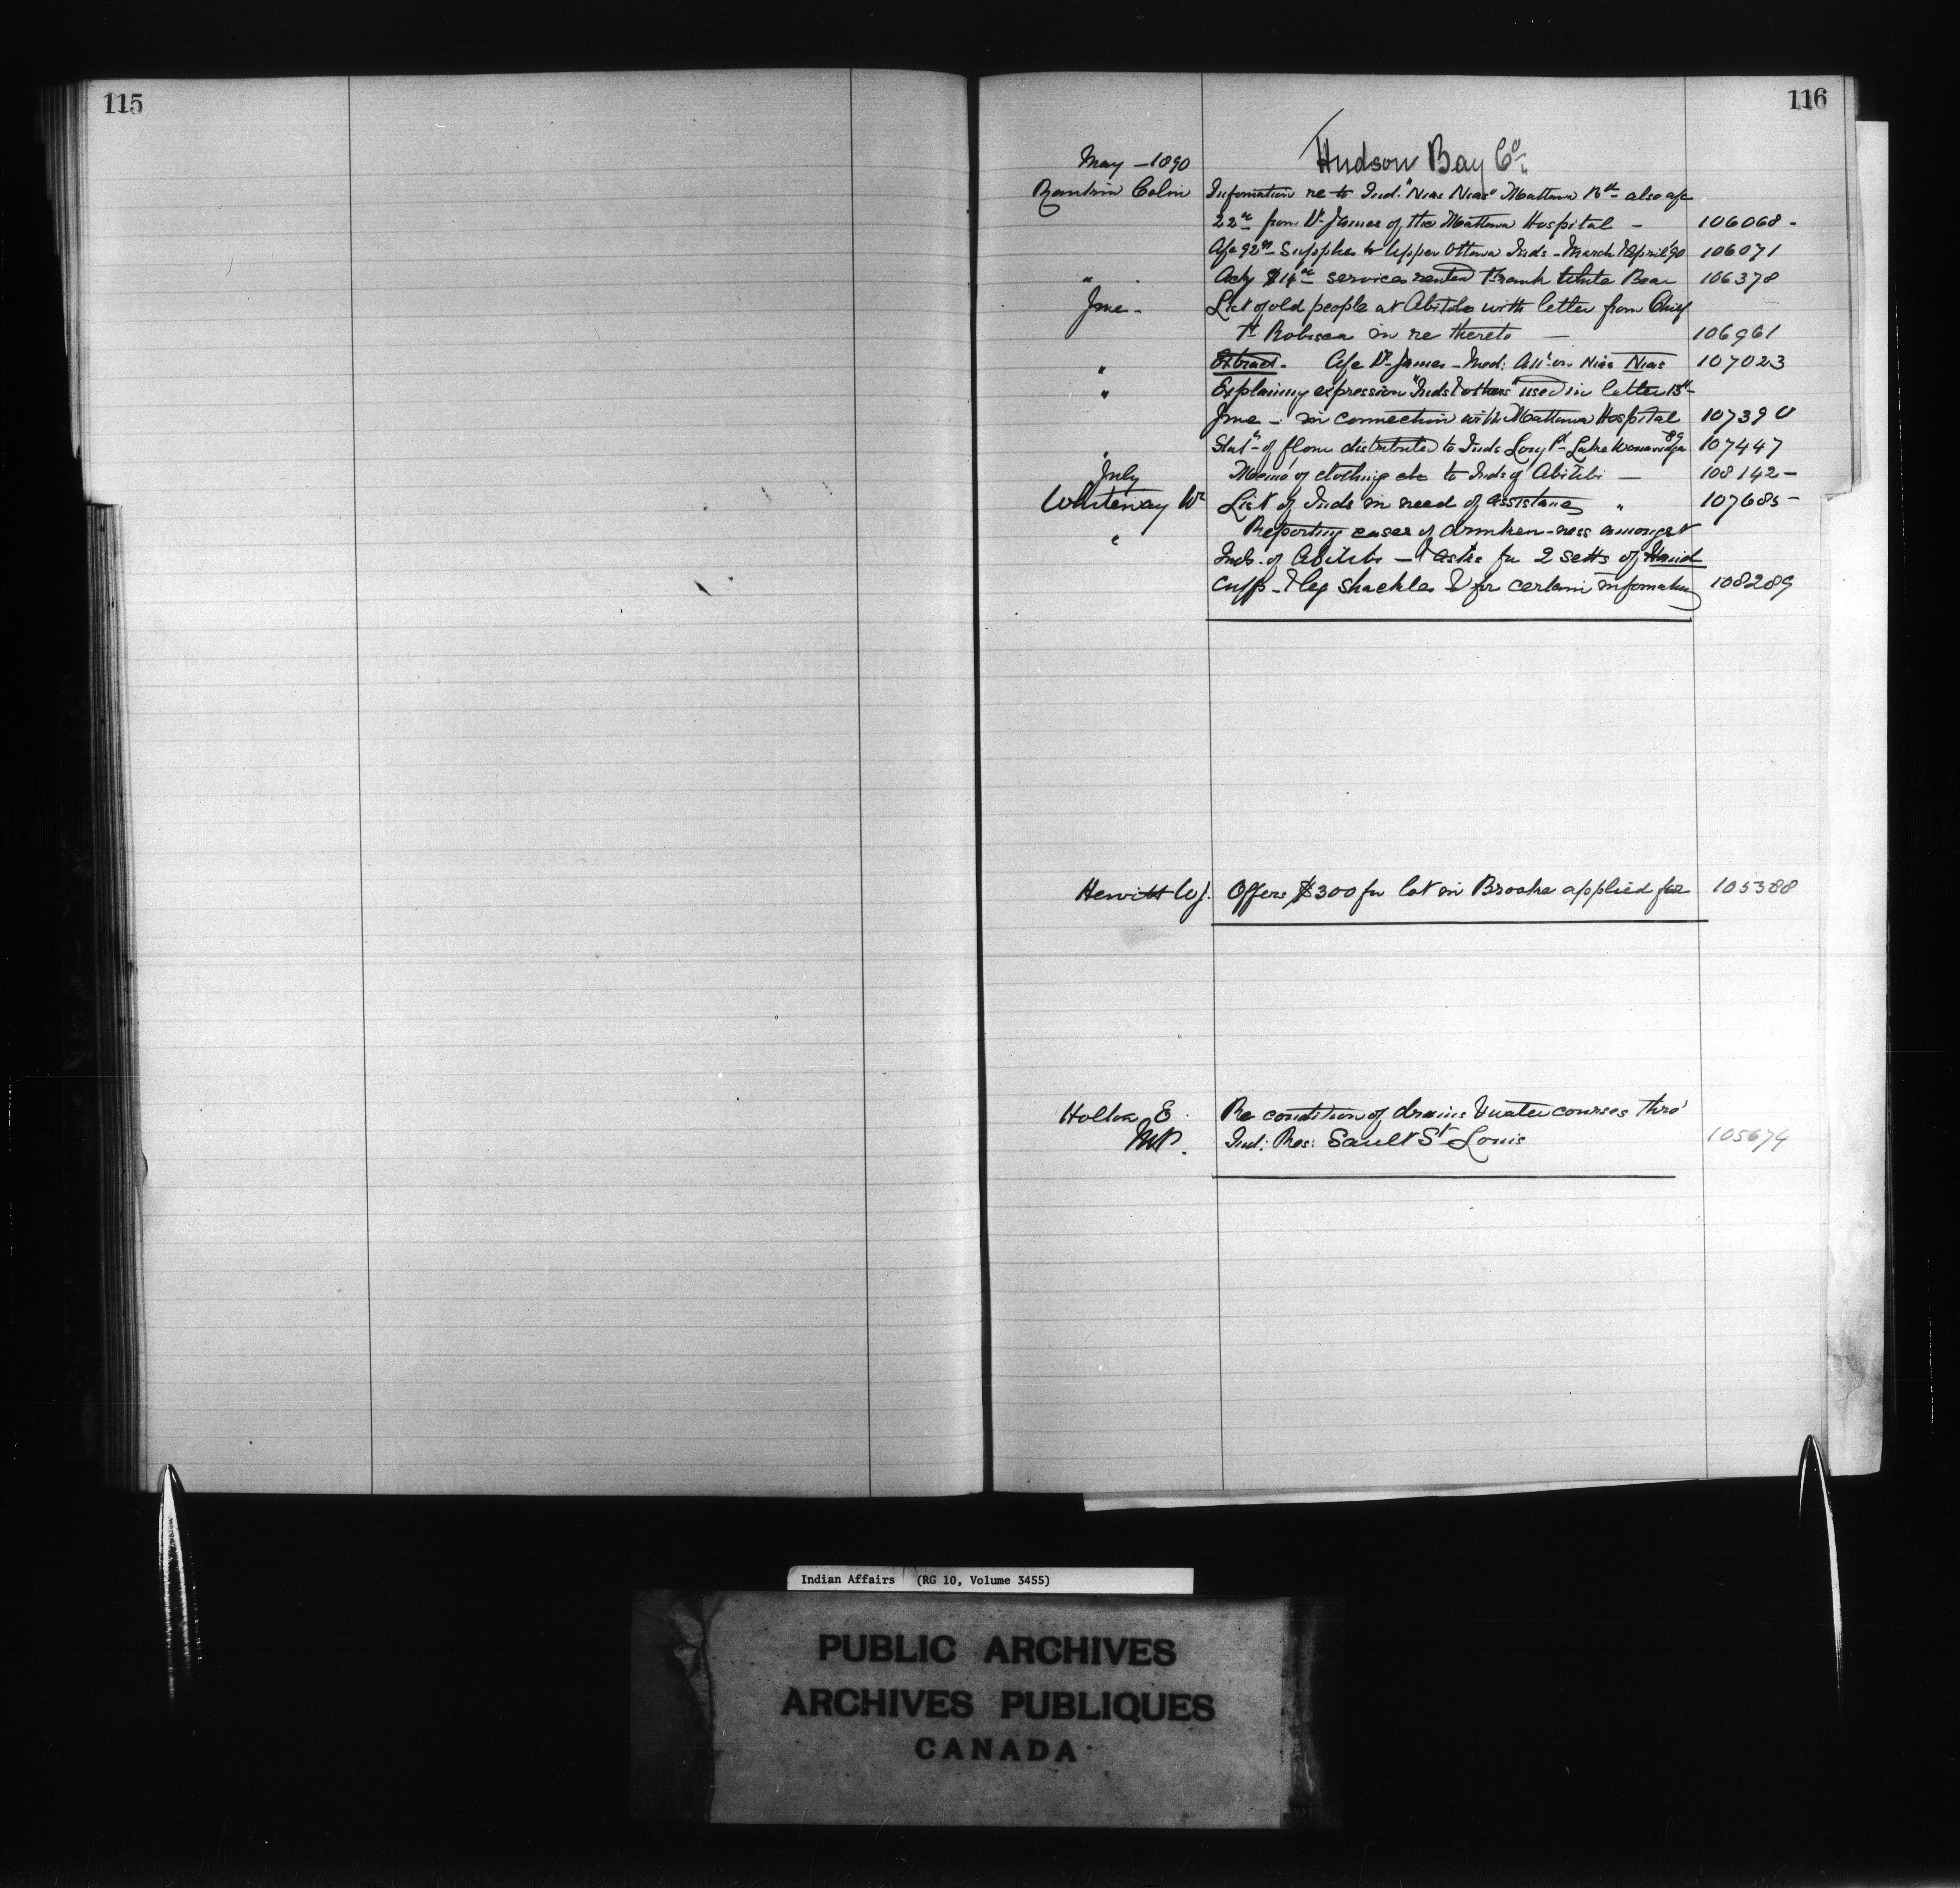 115
116
May - 1890 Hudson Bay Co.
Rankin Colin Information re to Ind. "Nias Nias" Mattawa Bd also a/c
22.00 from Dr James of the Mattawa Hospital - 106068 -
A/c 92.91 Supplies to Upper Ottawa Inds - March & April '90 106071
" Ackg $14.00 services Frank White Bear 106378
June - List of old people at Abitibi with letter from Chief
in re thereto - 106961
" Extract. A/c Dr James - Med: Att: on Nias Nias 107023
" Explaining expression "Inds & others" used in letter 13th
June - in connection with Mattawa Hospital 107390
" Stat. of flour distributed to Inds Long Pt Lake 89 107447
July Memo of clothing etc to Inds of Abitibi - 108142 -
Whiteway Wm List of Inds in need of assistance " 107685 -
" Reporting cases of drunken-ness amongst
Inds. of Abitibi - & asks for 2 setts of Hand
Cuffs - & leg shackles & for certain information 108289
Hewitt W J. Offers $300 for lot in Brooke applied for 105388
Holton E. Re condition of drains & water courses thro'
M.P. Ind: Res: Sault St Louis 105674
Indian Affairs (RG 10, Volume 3455)
PUBLIC ARCHIVES
ARCHIVES PUBLIQUES
CANADA